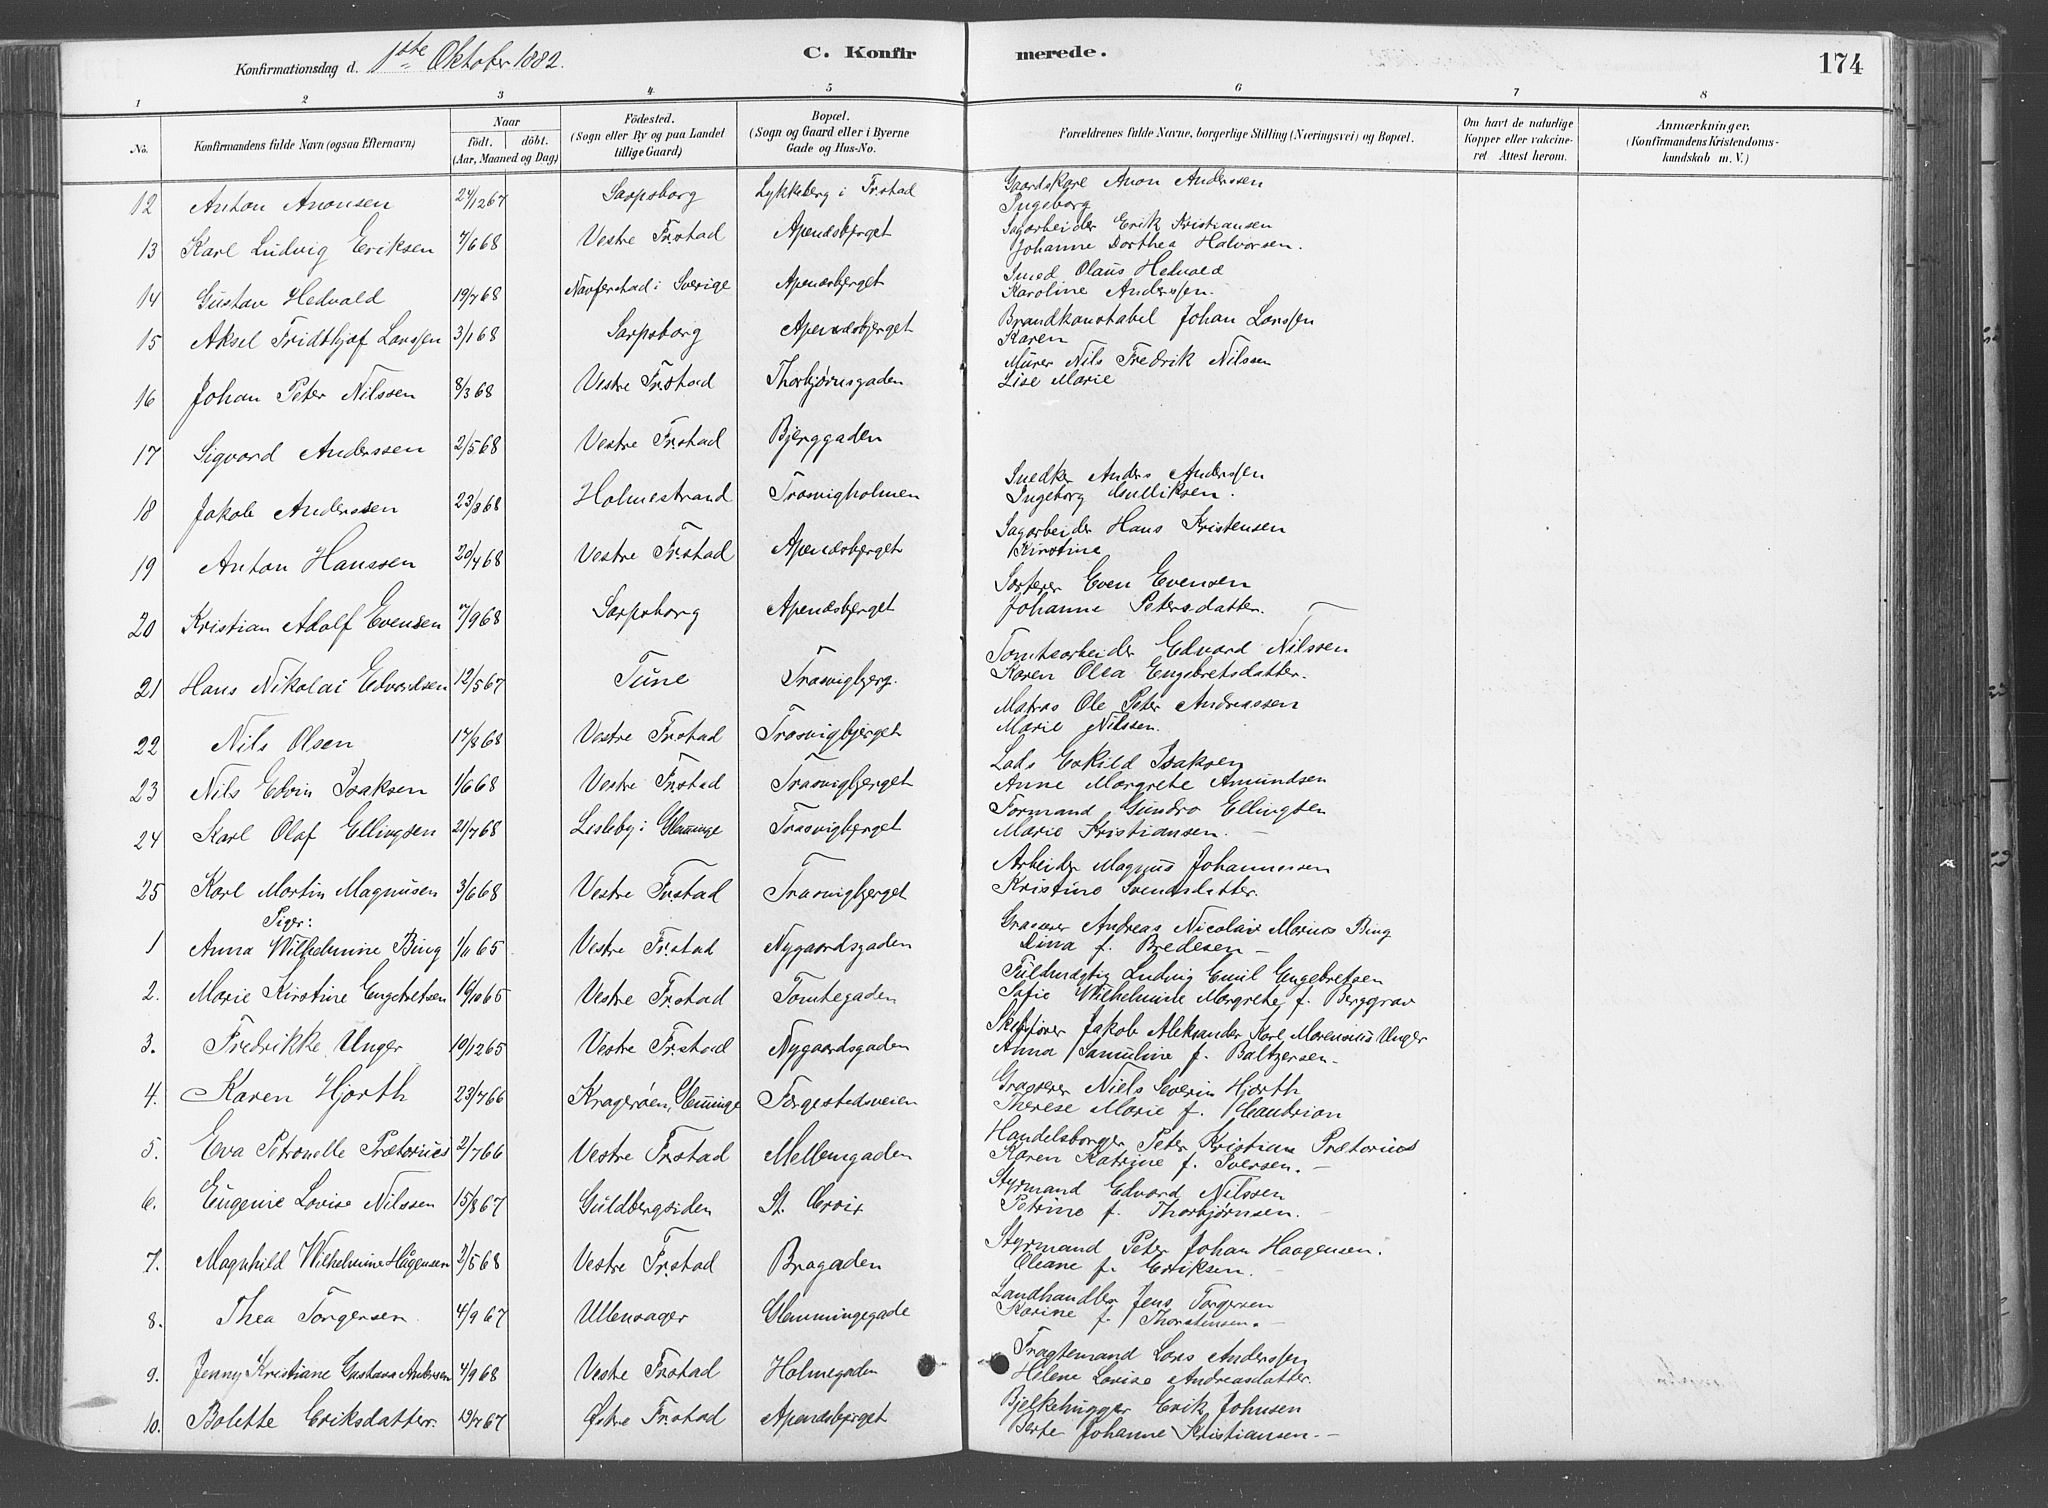 Konfirmationsdag d. 1ste Oktober 1882.
C. Konfirmerede.
174
1 2 3 4 5 6 7 8
No.
Konfirmandens fulde Navn (ogsaa Efternavn)
Naar
födt. döbt.
(Aar, Maaned og Dag)
Födested.
(Sogn eller By og paa Landet
tillige Gaard)
Bopæl.
(Sogn og Gaard eller i Byerne
Gade og Hus-No.
Forældrenes fulde Navne, borgerlige Stilling (Næringsvei) og Bopæl.
Om havt de naturlige
Kopper eller vakcine-
ret Attest herom.
Anmærkninger.
(Konfirmandens Kristendoms-
kundskab m. V.)
12 Anton Anonsen 24/12 67 Sarpsborg Lykkeberg i Fr.stad Gaardskarl Anon Anderssen
Ingeborg
13 Karl Ludvig Eriksen 7/6 68 Vestre Fr.stad Apenæsbjerget Sagarbeider Erik Kristiansen
Johanne Dorthea Halvorsen.
14 Gustav Hedvald 19/7 68 i Sverige Apenæsbjerget Smed Olaus Hedvald
Karoline Anderssen.
15 Aksel Fridthjof Larssen 3/1 68 Sarpsborg Apenæsbjerget Brandkonstabel Johan Larssen
Karen
16 Johan Peter Nilssen 8/3 68 Vestre Fr.stad Thorbjørnsgaden Murer Nils Fredrik Nilssen
Lise Marie
17 Sigvard Anderssen 2/5 68 Vestre Fr.stad Bjerggaden
18 Jakob Anderssen 23/8 68 Holmestrand Trosvigholmen Snedker Anders Anderssen
Ingeborg Gulliksen.
19 Anton Hanssen 20/4 68 Vestre Fr.stad Apenæsbjerget Sagarbeider Hans Kristensen
Kirstine
20 Kristian Adolf Evensen 7/9 68 Sarpsborg Apenæsbjerget Sorterer Even Evensen
Johanne Petersdatter.
21 Hans Nikolai Edvardsen 12/5 67 Tune Trosvigbjerg. Tomtearbeider Edvard Nilssen
Karen Olea Engebretsdatter.
22 Nils Olsen 17/8 68 Vestre Fr.stad Trosvigbjerget Matros Ole Peter Andreassen
Marie Nilssen.
23 Nils Edvin Isaksen 1/6 68 Vestre Fr.stad Trosvigbjerget Lods Eskild Isaksen
Anne Margrete Amundsen
24 Karl Olaf Ellingsen 21/7 68 Lisleby i Glemminge Trosvigbjerget Formand Gundro Ellingsen
Marie Kristiansen.
25 Karl Martin Magnusen 3/6 68 Vestre Fr.stad Trosvigbjerget Arbeider Magnus Johannessen
Kristine Svendsdatter.
Piger:
1 Anna Wilhelmine Bing 1/11 65 Vestre Fr.stad Nygaardsgaden Grosserer Andreas Nicolai Marius Bing
Dina f. Bredesen
2. Marie Kirstine Engebretsen 19/10 65 Vestre Fr.stad Tomtegaden Fuldmægtig Ludvig Emil Engebretsen
Sofie Wilhelmine Margrete f. Berggrav
3. Fredrikke Unger 10/12 65 Vestre Fr.stad Nygaardsgaden Skibsfører Jakob Aleksander Karl Morensius Unger
Anna Samuline f. Baltzersen
4. Karen Hjorth 23/7 66 Kragerøen, Glemminge Færgestedsveien Grosserer Niels Severin Hjorth
Therese Marie f.
5. Eva Petronelle Prætorius 2/7 66 Vestre Fr.stad Mellemgaden Handelsborger Peter Kristian Prætorius
Karen Katrine f. Iversen.
6. Eugenie Lovise Nilssen 15/8 67 Guldbergsiden St. Croix Styrmand Edvard Nilssen
Petrine f. Thorbjørnsen.
7. Magnhild Wilhelmine Hågensen 2/5 68 Vestre Fr.stad Bragaden Styrmand Peter Johan Haagensen.
Oleane f. Eriksen.
8. Thea Torgersen 4/9 67 Ullensager Glemmingegade Landhandler Jens Torgersen
Karine f. Thorstensen.
9. Jenny Kristiane Gustava Andersen 4/9 68 Vestre Fr.stad Holmegaden Fragtemand Lars Anderssen
Helene Lovise Andreasdatter.
10. Bolette Eriksdatter 19/7 67 Østre Fr.stad Apenæsbjerget Bjelkehugger Erik Johnsen
Berte Johanne Kristiansen.